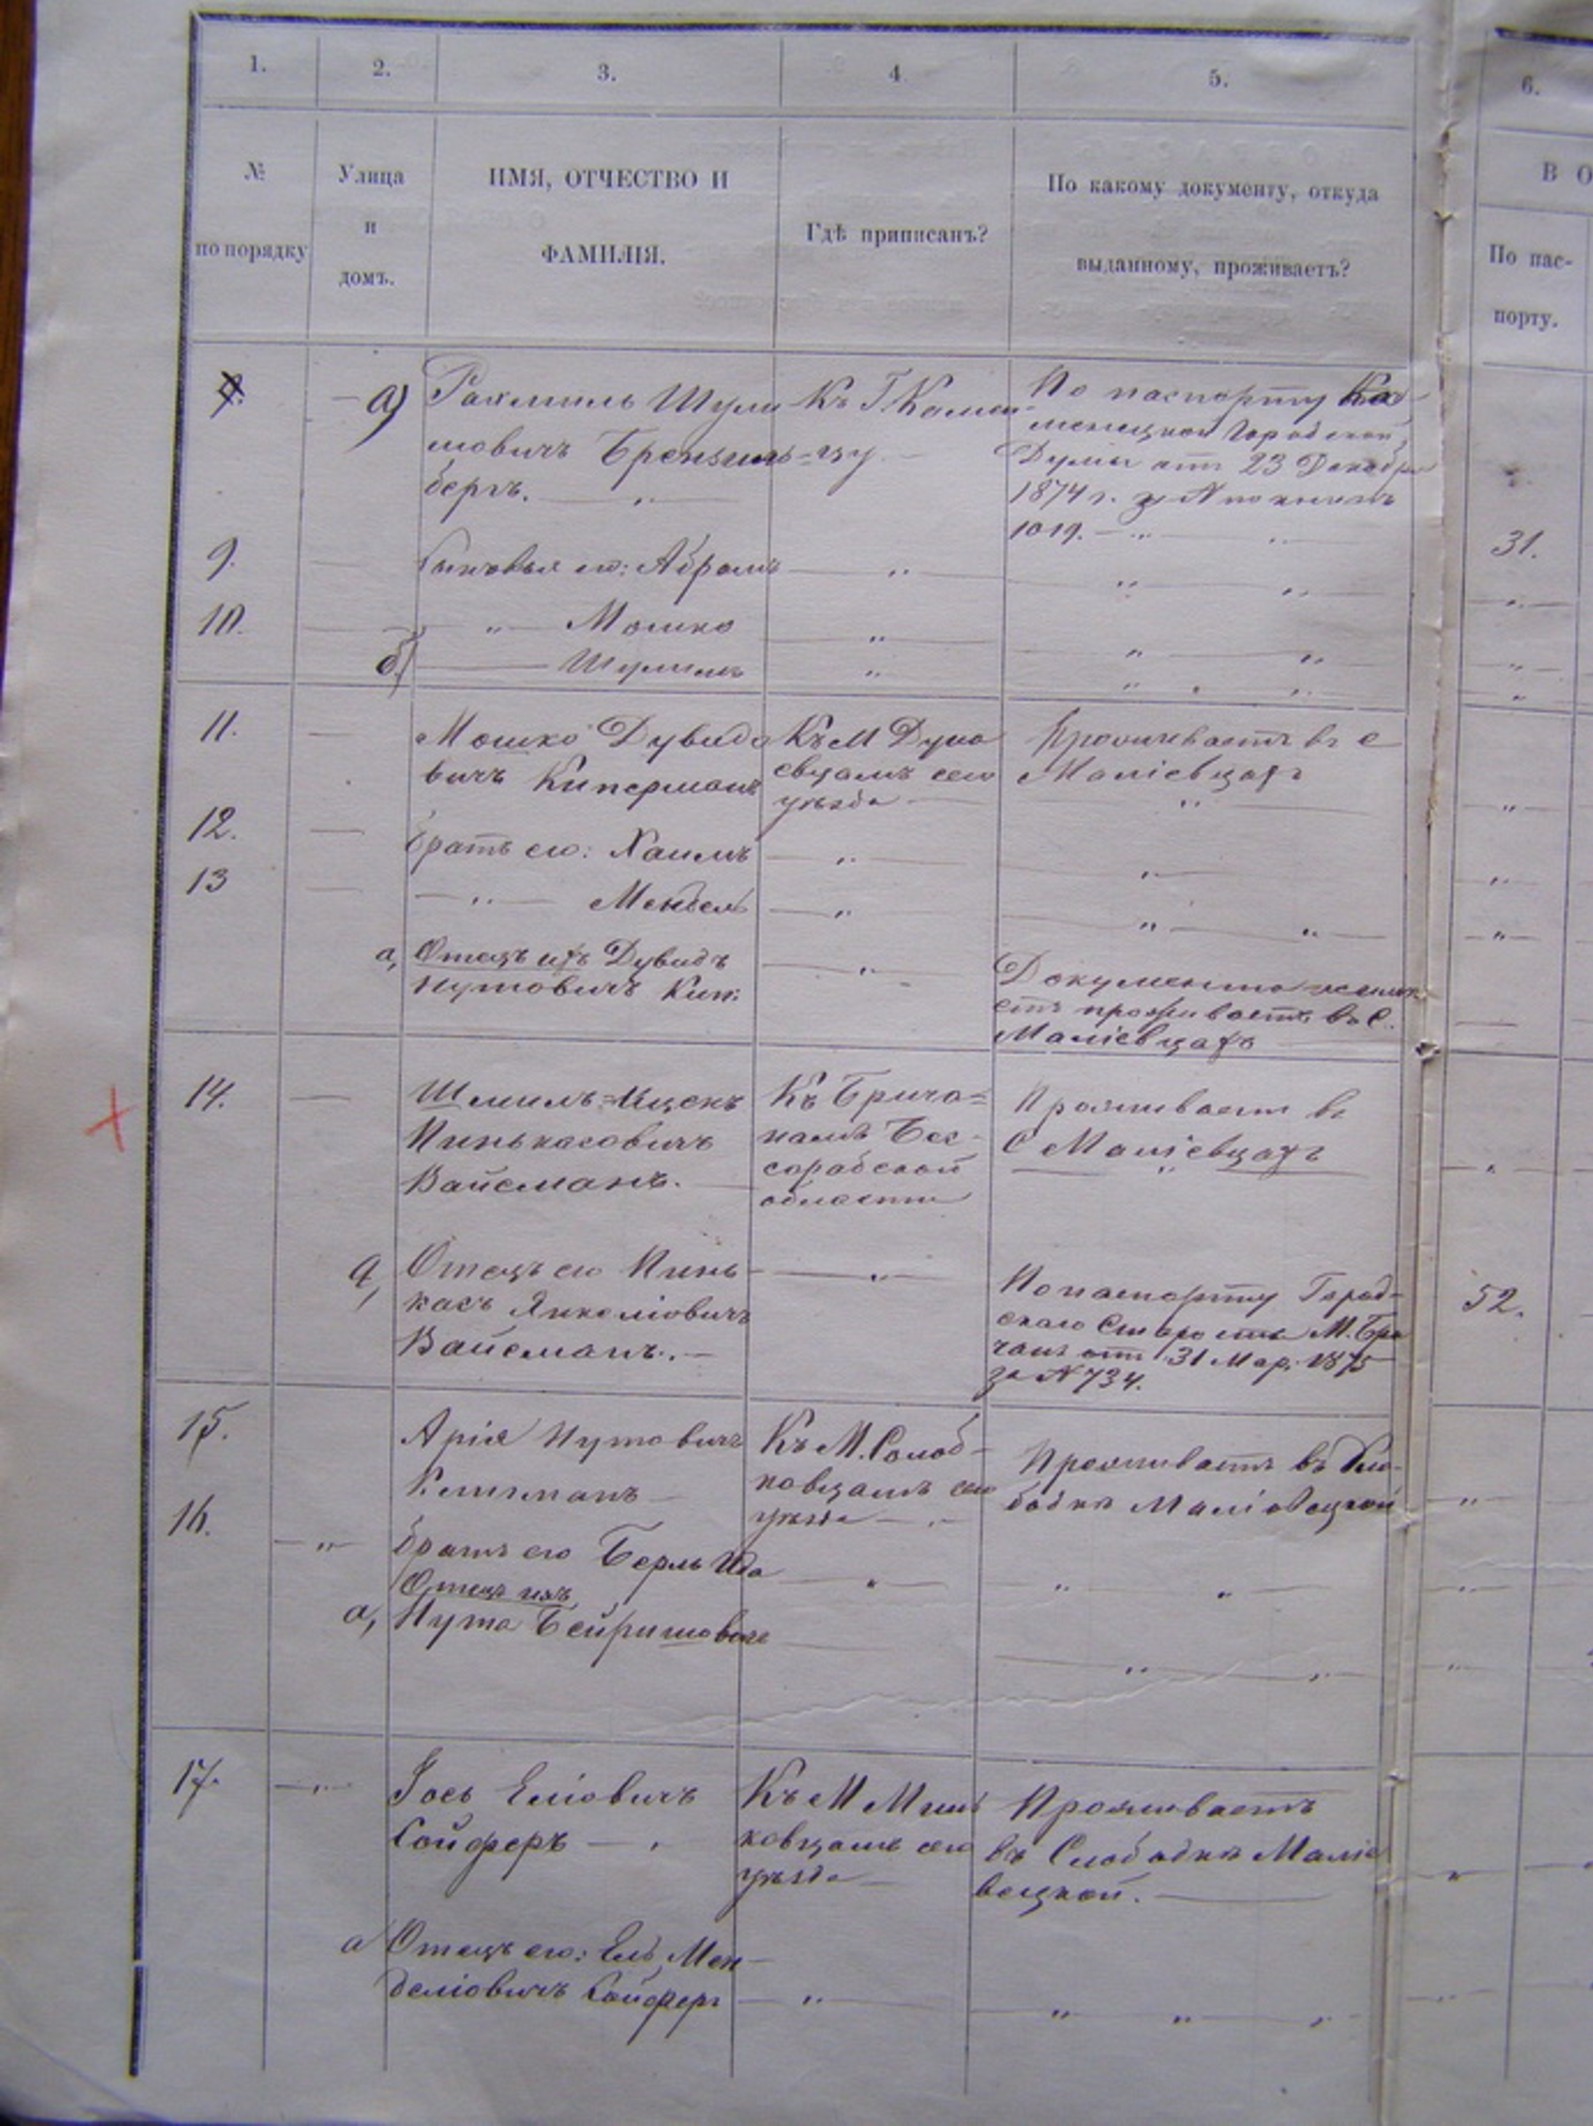 1. 2. 3. 4 5. 6.
№ по порядку
Улица и домъ.
ИМЯ, ОТЧЕСТВО И
ФАМИЛІЯ.
Гдѣ приписанъ?
По какому документу, откуда
выданному, проживаетъ?
В О
По пас-
порту.
а) Рахмиль Шули
мовичъ
бергъ.
Къ Г. Каме
нцу
По паспорту Ка-
менецкой Городской
Думы отъ 23 Декабря
1874 г. за №
1019.
31.
9. Сыновья его: Абрамъ
10. " Мошко
б) Шулимъ
11. Мошко Дувидо
вичъ Киперманъ
Къ М Дуна
евцамъ сего
уѣзда
Проживаетъ въ с
Маліевцахъ
12. братъ его: Хаимъ
13 " Мендель
а, Отецъ ихъ Дувидъ
Нутовичъ Кип:
Документа не имѣ
етъ проживаетъ въ С.
Маліевцахъ
14. Шмиль-Ицекъ
Пинькасовичъ
Вайсманъ.
Къ Брича=
намъ Бес-
сарабской
области
Проживаетъ въ
С Маліевцахъ
а, Отецъ его Пинь-
касъ Янкеліовичъ
Вайсманъ.
По паспорту Город-
скаго Старосты М. Бри
чанъ отъ 31 Мар. 1875
за № 734.
52.
15. Арія Нутовичъ
Къ М. Солоб-
ковцамъ сего
уѣзда
Проживаетъ въ Сло-
бодкѣ Маліовецкой
16. " братъ его Берль
Отецъ ихъ
а, Нута
17. Іось Еліовичъ
Сойферъ
Къ М Минь
ковцамъ сего
уѣзда
Проживаетъ
въ Слободкѣ Маліе
вецкой.
а Отецъ его: Ель Мен-
деліовичъ Сойферъ